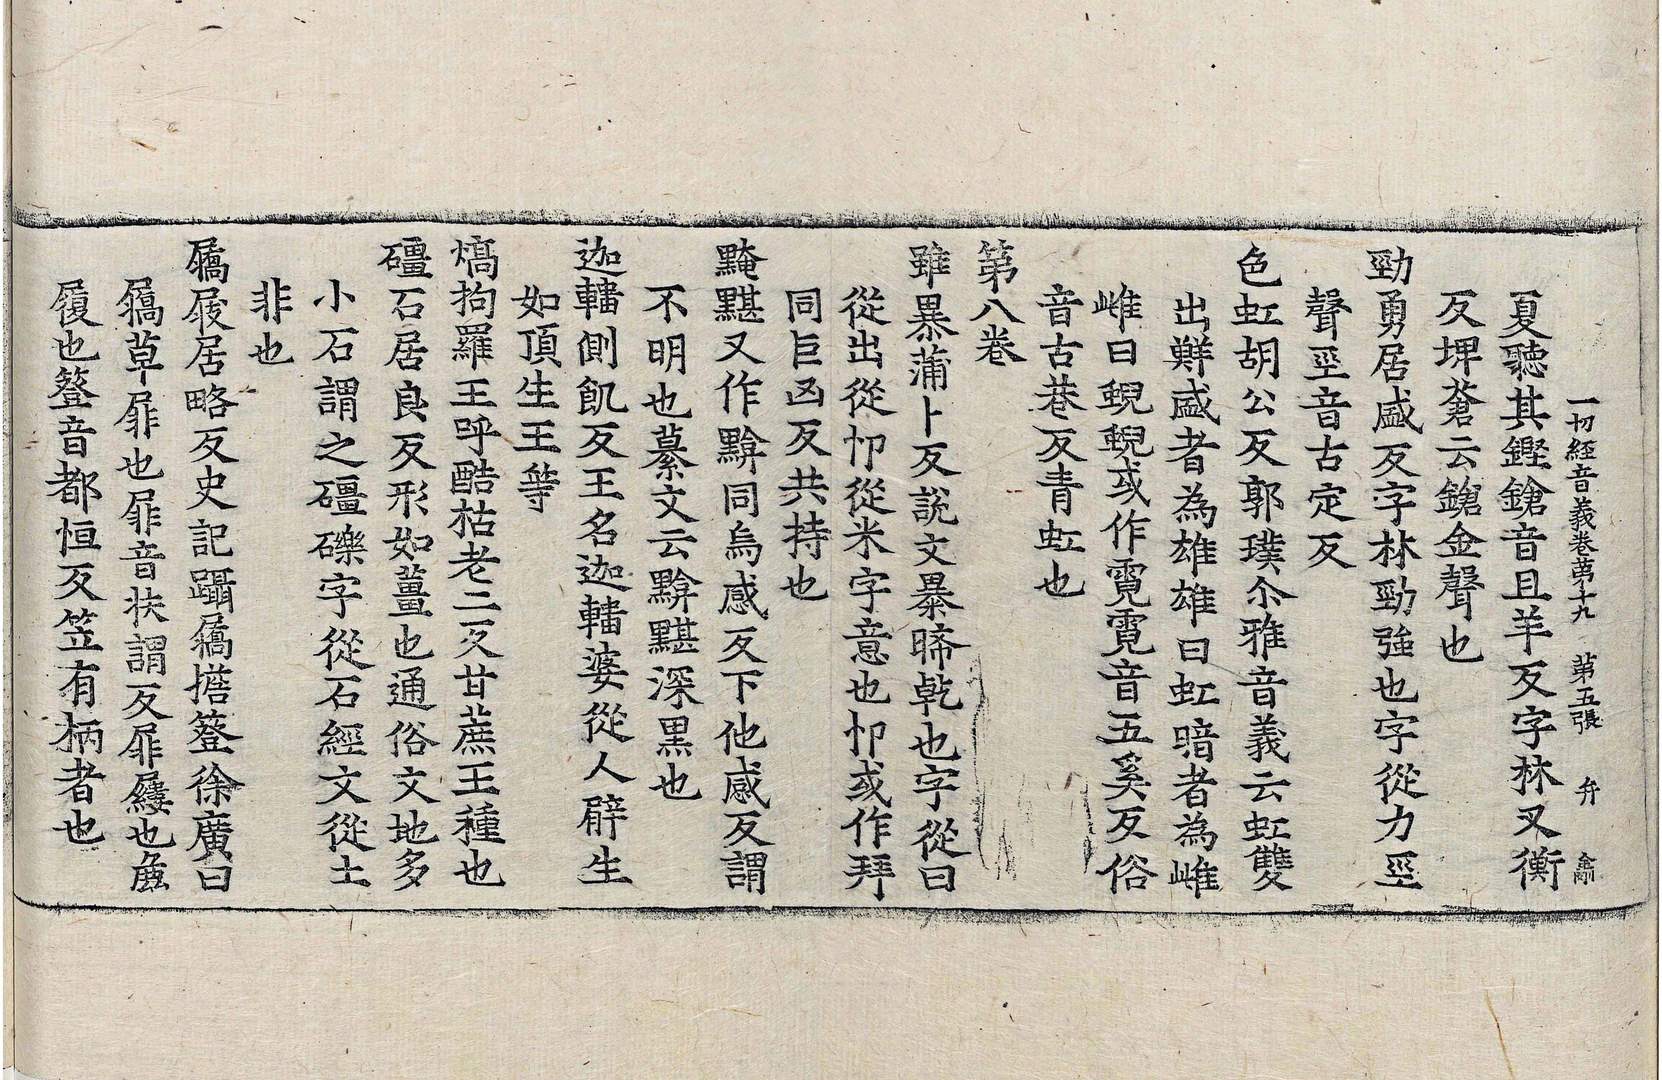 一切經音義卷第十九　第五張　弁
夏聽其鏗鎗音且羊反字林又衡
反埤蒼云鎗金聲也
勁勇居盛反字林勁強也字從力巠
聲巠音古定反
色虹胡公反郭璞尒雅音義云虹雙
出鮮盛者為雄雄曰虹暗者為雌
雌曰蜺蜺或作霓霓音五奚反俗
音古巷反青虹也
第八卷
雖暴蒲卜反說文暴晞乾也字從日
從出從廾從米字意也廾或作拜
同巨凶反共持也
黤黮又作黭同烏感反下他感反謂
不明也纂文云黭黮深黑也
迦轖側飢反王名迦轖婆從人臂生
如頂生王等
熇拘羅王呼酷枯老二反甘蔗王種也
礓石居良反形如薑也通俗文地多
小石謂之礓礫字從石經文從土
非也
屩屐居略反史記躡屩擔簦徐廣曰
屩草屝也屝音扶謂反屝屨也麁
履也簦音都恒反笠有柄者也